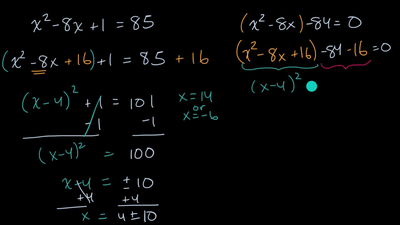 x² - 8x + 1 = 85
(x² - 8x + 16) + 1 = 85 + 16
(x-4)² + 1 = 101
-1 -1
(x-4)² = 100
x-4 = ±10
+4 +4
x = 4 ± 10
x = 14
or
x = -6
(x² - 8x) - 84 = 0
(x² - 8x + 16) - 84 - 16 = 0
(x-4)²